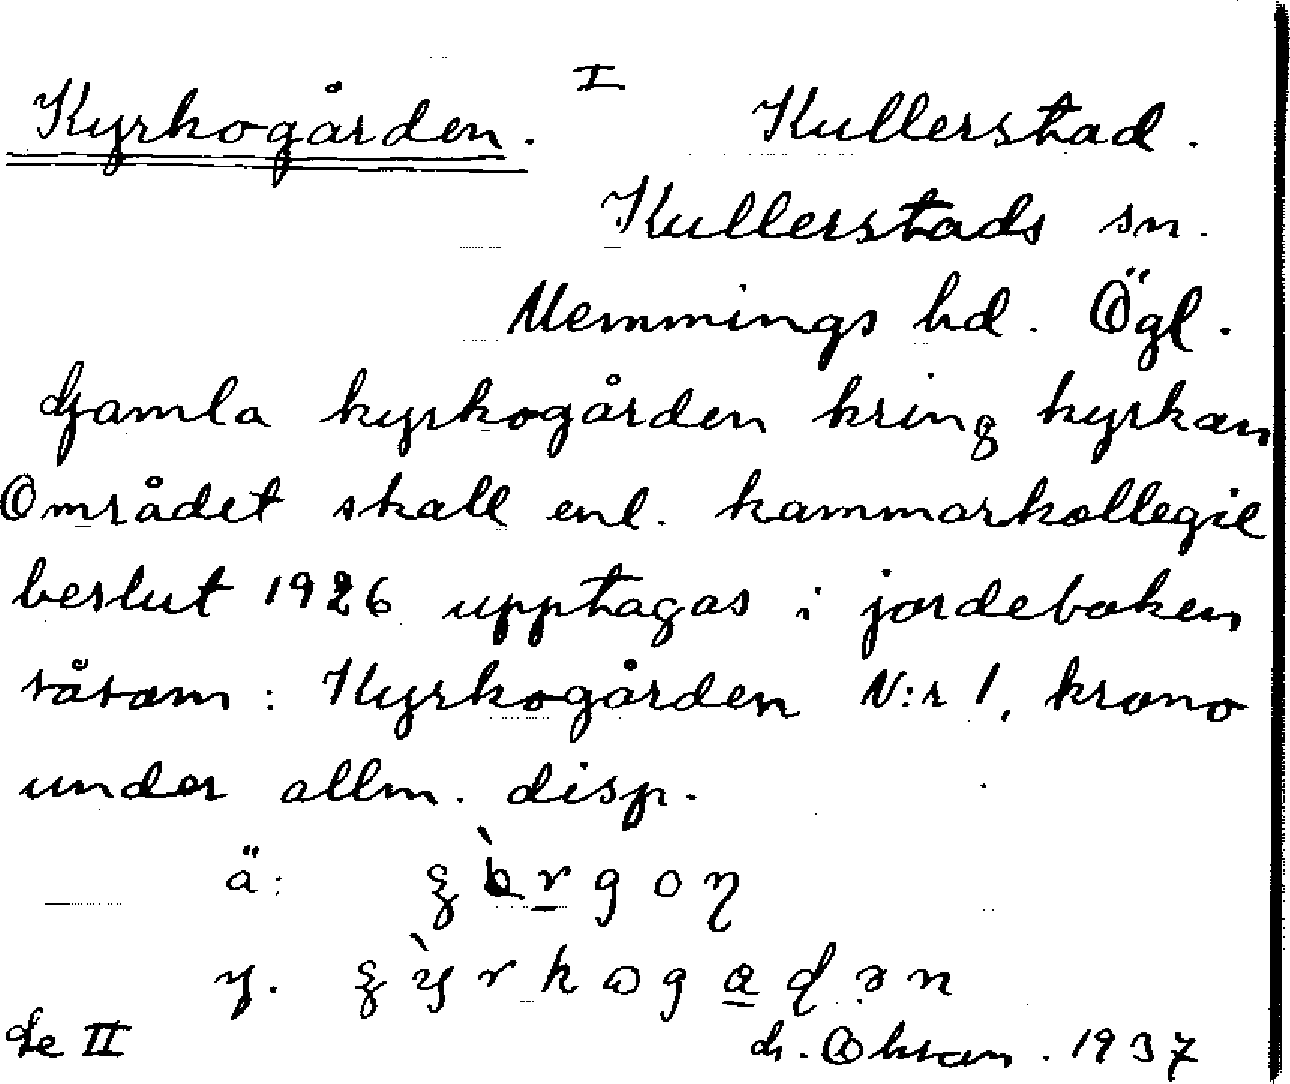 Kyrkogården. I Kullerstad.
Kullerstads sn.
Memmings hd. Ögl.
Gamla kyrkogården kring kyrkan
Området skall enl. kammarkollegie
beslut 1926 upptagas i jordeboken
såsom: Kyrkogården N:r 1, krono
under allm. disp.
ä:
y.
Se II 1937